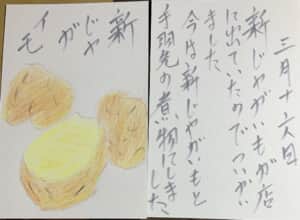 新じゃがイモ
三月十六日
新じゃがいもが店
に出ていたのでついかい
ました
今は新じゃがいもと
手羽先の煮物にしました